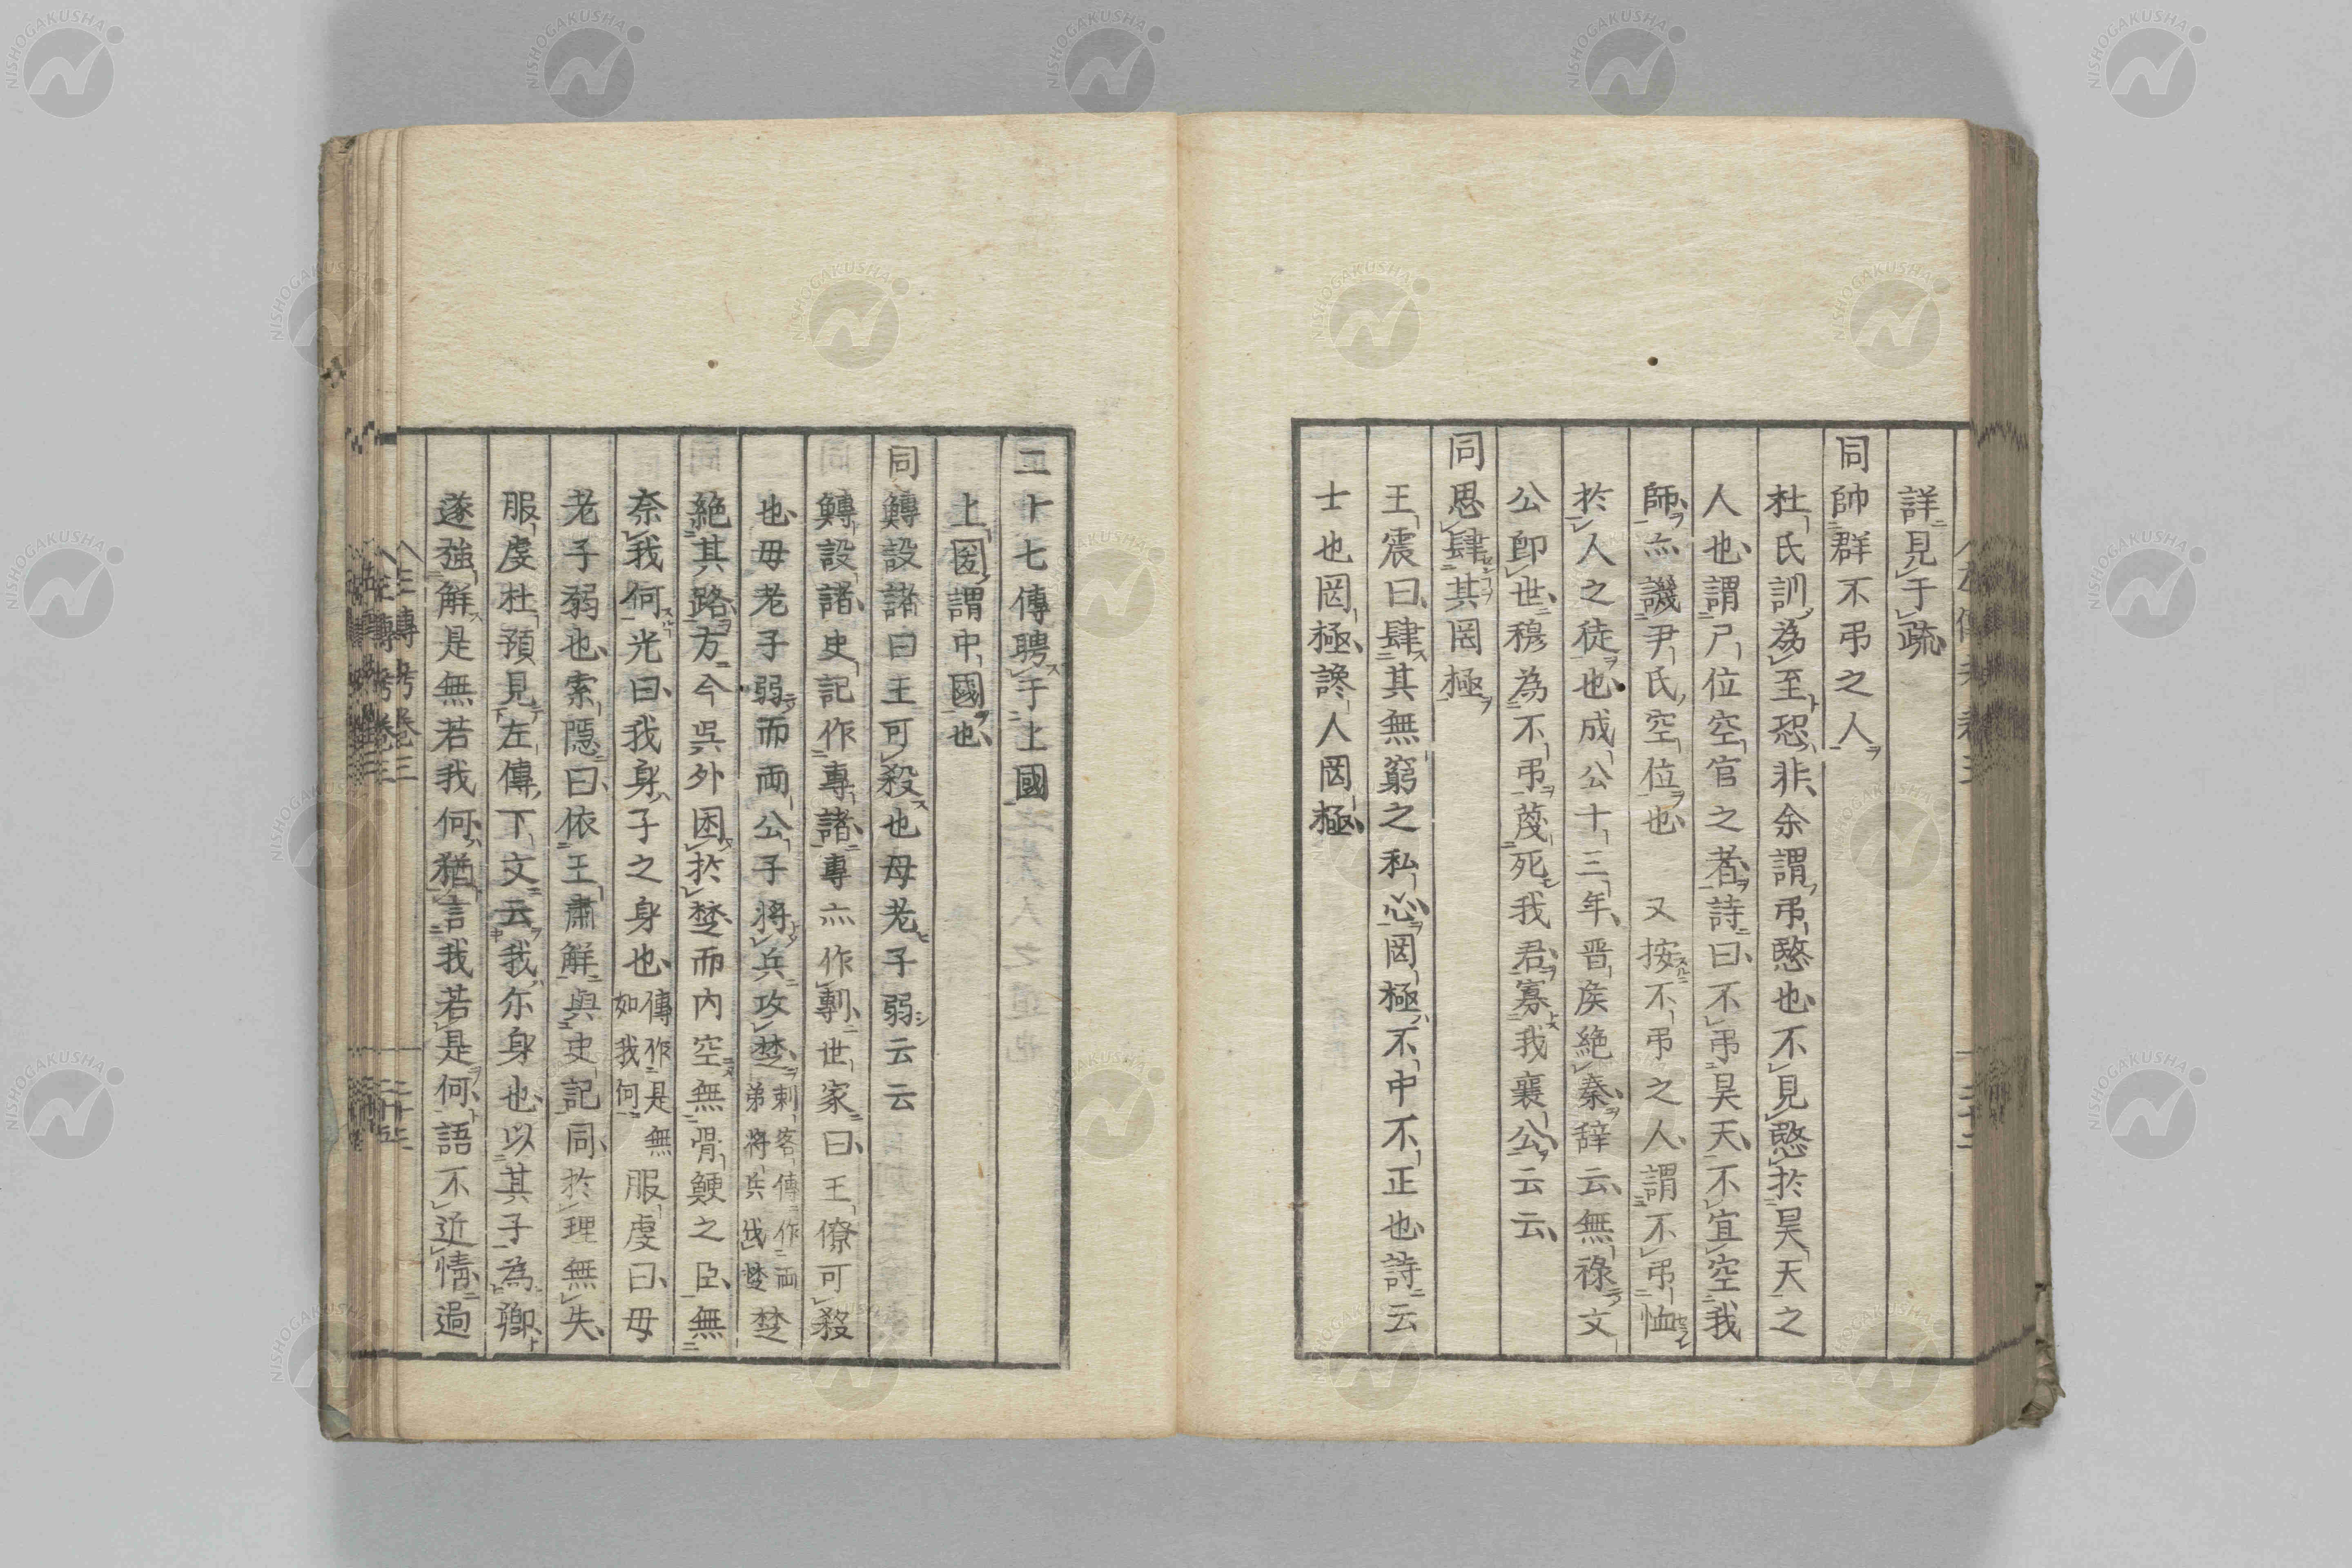 詳見于疏
同帥群不弔之人
杜氏訓為至恐非余謂弔愍也不見愍於昊天之
人也謂尸位空官之者詩曰不弔昊天不宜空我
師亦譏尹氏空位也 又按不弔之人謂不弔恤
於人之徒也成公十三年晋侯絶秦辞云無祿文
公即世穆為不弔蔑死我君寡我襄公云云
同恩肆其罔極
王震曰肆其無窮之私心罔極不中不正也詩云
士也罔極讒人罔極
二十七傳聘于上國
上國謂中國也
同鱄設諸曰王可殺也母老子弱云云
鱄設諸史記作專諸專亦作剸世家曰王僚可殺
也母老子弱而両公子將兵攻楚刺客傳作両弟將兵伐楚楚
絶其路方今呉外困於楚而内空無骨鯁之臣無
奈我何光曰我身子之身也傳作是無如我何服虔曰母
老子弱也索隠曰依王肅解與史記同於理無失
服虔杜預見左傳下文云我尓身也以其子為卿
遂強解是無若我何猶言我若是何語不近情過
NISHOGAKUSHA